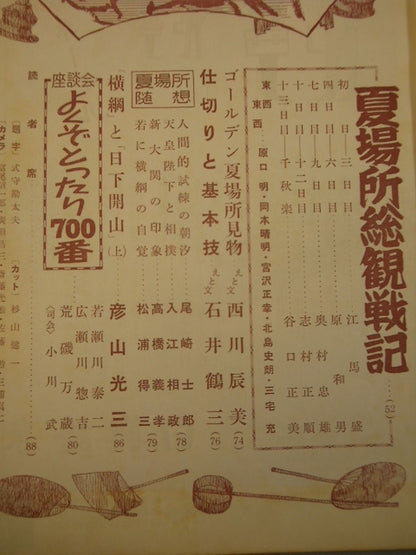 夏場所総観戦記 (52)
初日—三日目 江馬盛
四日目—六日目 原和男
七日目—九日目 奥村忠雄
十日目—十二日目 志村正順
十三日目—千秋楽 谷口正美
東西東西…原口明・岡本晴明・宮沢正幸・北島史朗・三宅充
ゴールデン夏場所見物 えと文 西川辰美 (74)
仕切りと基本技 えと文 石井鶴三 (76)
夏場所随想
人間的試練の朝汐 尾崎士郎 (78)
天皇陛下と相撲 入江相政 (78)
新大関の印象 高橋義孝 (79)
若に横綱の自覚 松浦得三
「横綱」と「日下開山」(上) 彦山光三 (86)
座談会
よくぞとったり700番
若瀬川泰二
広瀬川惣吉
荒磯万蔵 (80)
(司会) 小川武
読者席 (88)
(題字) 式守勘太夫
(カット) 杉山雄一
(カメラ)